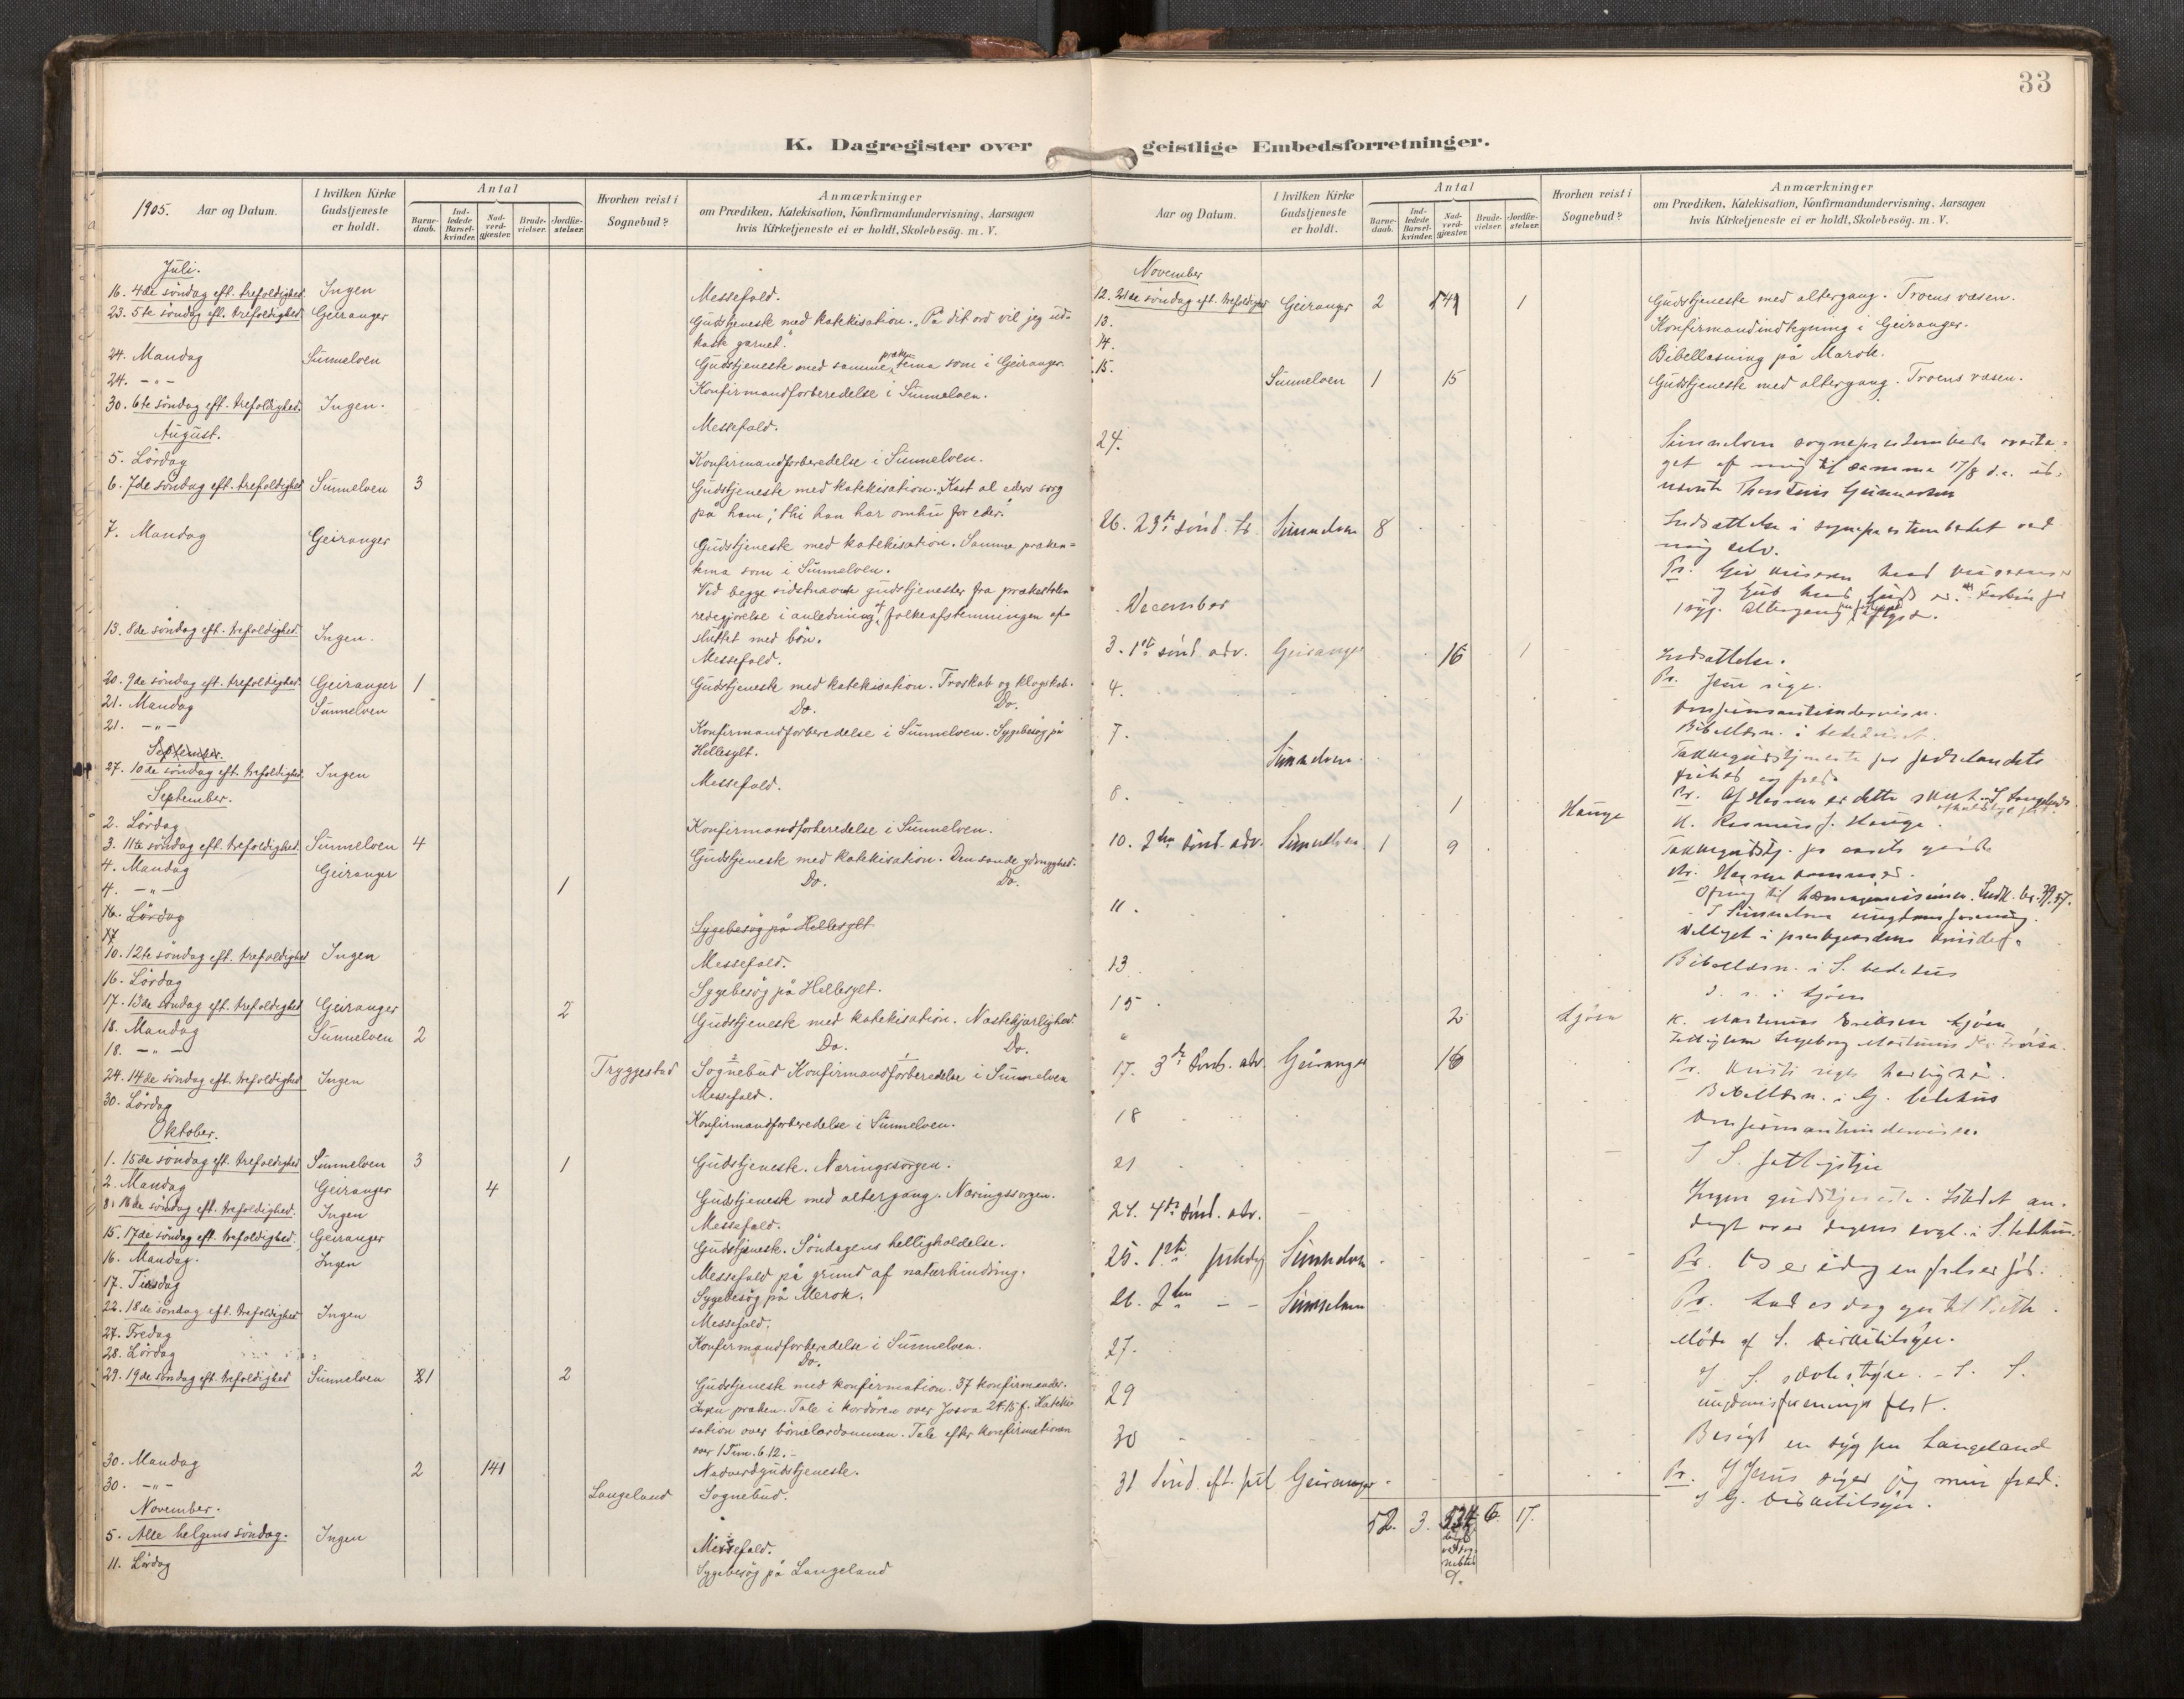 33
K. Dagregister over geistlige Embedsforretninger.
1905. Aar og Datum.
I hvilken Kirke Gudstjeneste er holdt.
Antal
Barnedaab.
Indledede Barselkvinder.
Nadverdgjæster.
Brudevielser.
Jordfæstelser.
Hvorhen reist i Sognebud?
Anmærkninger
om Prædiken, Katekisation, Konfirmandundervisning, Aarsagen
hvis Kirketjeneste ei er holdt, Skolebesög. m. V.
Juli.
16. 4de söndag eft. trefoldighed. Ingen Messefald.
23. 5te söndag eft. trefoldighed Geiranger Gudstjeneste med katekisation. "På dit ord vil jeg ud-
kaste garnet."
24. Mandag Sunnelven Gudstjeneste med samme præken tema som i Geiranger.
24. -"- Konfirmandforberedelse i Sunnelven.
30. 6te söndag eft. trefoldighed. Ingen. Messefald.
August.
5. Lördag Konfirmandforberedelse i Sunnelven.
6. 7de söndag eft. trefoldighed Sunnelven 3 Gudstjeneste med katekisation. "Kast al eders sorg
på ham; thi han har omhu for eder."
7. Mandag Geiranger Gudstjeneste med katekisation. Samme præken-
tema som i Sunnelven.
Ved begge sidstnævnte gudstjenester fra prækestolen
redegjørelse i anledning af folkeafstemningen af-
sluttet med bön.
13. 8de söndag eft. trefoldighed. Ingen. Messefald.
20. 9de söndag eft. trefoldighed. Geiranger 1 Gudstjeneste med katekisation. Troskab og klogskab.
21. Mandag Sunnelven Do. Do.
21. -"- Konfirmandforberedelse i Sunnelven. Sygebesög på
Hellesylt.
September.
27. 10de söndag eft. trefoldighed. Ingen Messefald.
September.
2. Lördag Konfirmandforberedelse i Sunnelven.
3. 11te söndag eft. trefoldighed. Sunnelven 4 Gudstjeneste med katekisation. Den sande ydmyghed.
4. Mandag Geiranger Do. Do.
4. -"- 1
16. Lördag Sygebesög på Hellesylt
17
10. 12te söndag eft. trefoldighed Ingen Messefald.
16. Lördag Sygebesög på Hellesylt.
17. 13de söndag eft. trefoldighed Geiranger 2 Gudstjeneste med katekisation. Næstekjærlighed.
18. Mandag Sunnelven 2 Do. Do.
18. -"- Tryggestad Sognebud Konfirmandforberedelse i Sunnelven
24. 14de söndag eft. trefoldighed Ingen Messefald.
30. Lördag Konfirmandforberedelse i Sunnelven.
Oktober.
1. 15de söndag eft. trefoldighed Sunnelven 3 1 Gudstjeneste. Næringssorgen.
2. Mandag Geiranger 4 Gudstjeneste med altergang. Næringssorgen.
8. 16de söndag eft. trefoldighed. Ingen Messefald.
15. 17de söndag eft. trefoldighed. Geiranger Gudstjeneste. Söndagens helligholdelse.
16. Mandag. Ingen Messefald på grund af naturhindring.
17. Tirsdag Sygebesög på Merok.
22. 18de söndag eft. trefoldighed Ingen Messefald.
27. Fredag Konfirmandforberedelse i Sunnelven.
28. Lördag Do.
29. 19de söndag eft. trefoldighed Sunnelven 1 2 Gudstjeneste med konfirmation. 37 konfirmander.
Ingen præken. Tale i kordören over Josva 24.15 f. Kateki-
sation over börnelærdommen. Tale efter konfirmationen
over 1 Tim. 6.12.
30. Mandag 2 141 Nadverdgudstjeneste.
30. -"- Langeland Sognebud.
November.
5. Alle helgens söndag. Ingen Messefald.
11. Lördag Sygebesög på Langeland
Aar og Datum.
I hvilken Kirke Gudstjeneste er holdt.
Antal
Barnedaab.
Indledede Barselkvinder.
Nadverdgjæster.
Brudevielser.
Jordfæstelser.
Hvorhen reist i Sognebud?
Anmærkninger
om Prædiken, Katekisation, Konfirmandundervisning, Aarsagen
hvis Kirketjeneste ei er holdt, Skolebesög. m. V.
November
12. 21de söndag eft. trefoldighed Geiranger 2 1 Gudstjeneste med altergang. Troens væsen.
13. Konfirmandindtegning i Geiranger.
14. Bibellæsning på Marok.
15. Sunnelven 1 15 Gudstjeneste med altergang. Troens væsen.
24. Sunnelven sogneprestembede overta-
get af mig til samme 17/8 d.a. ud-
nævnte
26. 23de sönd. tr. Sunnelven 8 Indsættelse i sogneprestembedet ved
mig selv.
Pr. Giv keiseren hvad keiserens
er og Gud hvad Guds er.
December
3. 1ste sönd. adv. Geiranger 16 1 Indsættelse.
Pr. Jesu rige.
4. Konfirmantundervisn.
Bibellæsn. i bedehuset.
7. Sunnelven. Takkegudstjeneste for fædrelandets
frihed og fred.
Pr. Af Herren er dette skeet.
8. 1 Hauge K. Rasmus J. Hauge.
10. 2den sönd. adv. Sunnelven 1 9 Takkegudstj. for aarets gröde
Pr. Herren kommer.
11. I Sunnelven ungdomsforening.
13 Bibellæsn. i S. bedehus
15. 2 Ljöen K. Martinus Eriksen Ljöen
17. 3de sönd. adv. Geiranger 16 Pr. Kristi riges herlighed.
Bibellæsn. i G. bedehus
18 Konfirmantundervisn.
21 I S. fattigstyre
24. 4de sönd. adv. Ingen gudstjeneste. Istedet an-
dagt over dagens evgl. i S. bedehus.
25. 1ste juledag Sunnelven Pr. Os er idag en frelser föd.
26. 2den - - Sunnelven Pr.
27. Möde af S.
29 I S. - I S.
ungdomsforenings fest.
30 Besögt en syg paa Langeland
31 Sönd. eft. jul Geiranger Pr. I Jesus söger jeg min fred.
52. 3. 534 6. 17.
9.